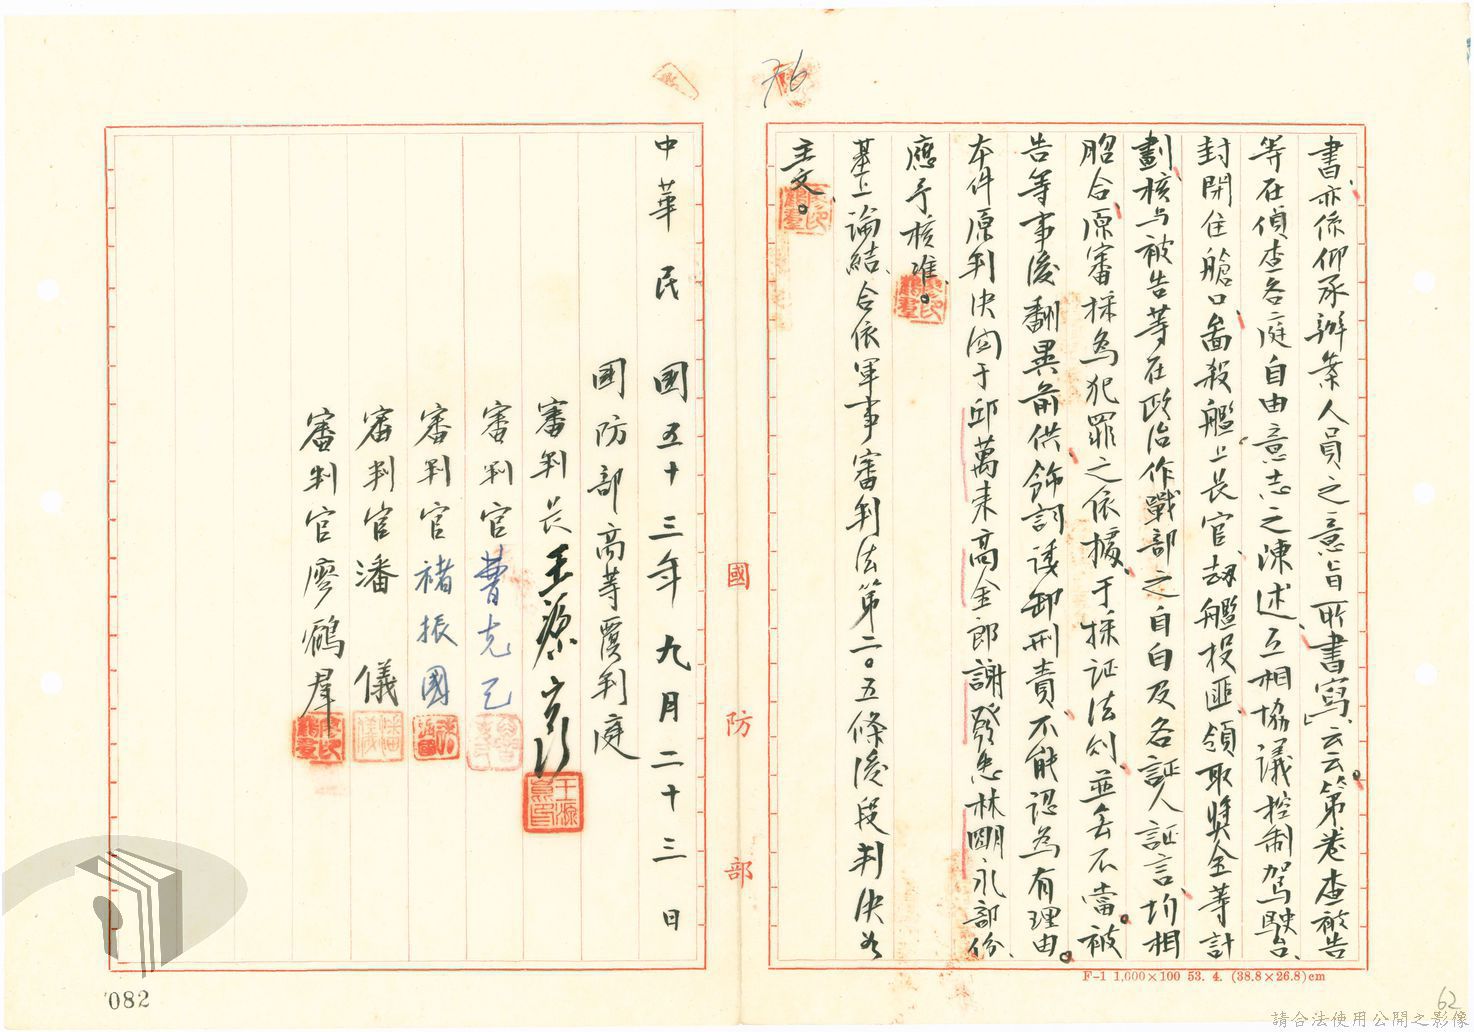 76
書、亦係仰承辦案人員之意旨所書寫」云云。第卷查被告
等在偵查各庭自由意志之陳述、互相協議控制駕駛台、
封閉住艙口、啚殺艦上長官、刼艦投匪、領取獎金等計
劃、核与被告等在政治作戰部之自白及各証人証言、均相
脗合、原審採為犯罪之依據、于採証法則、並無不當。被
告等事後翻異前供、飾詞諉卸刑責、不能認為有理由。
本件原判決関于邱萬来高金郎謝發忠林明永部份、
應予核准。
基上論結、合依軍事審判法第二〇五條後段判決如
主文。
中華民國五十三年九月二十三日
國防部高等覆判庭
審判長王源
審判官曹克己
審判官褚振國
審判官潘儀
審判官廖鶴羣
國防部
F-1 1,600×100 53. 4. (38.8×26.8)cm
082
62
請合法使用公開之影像